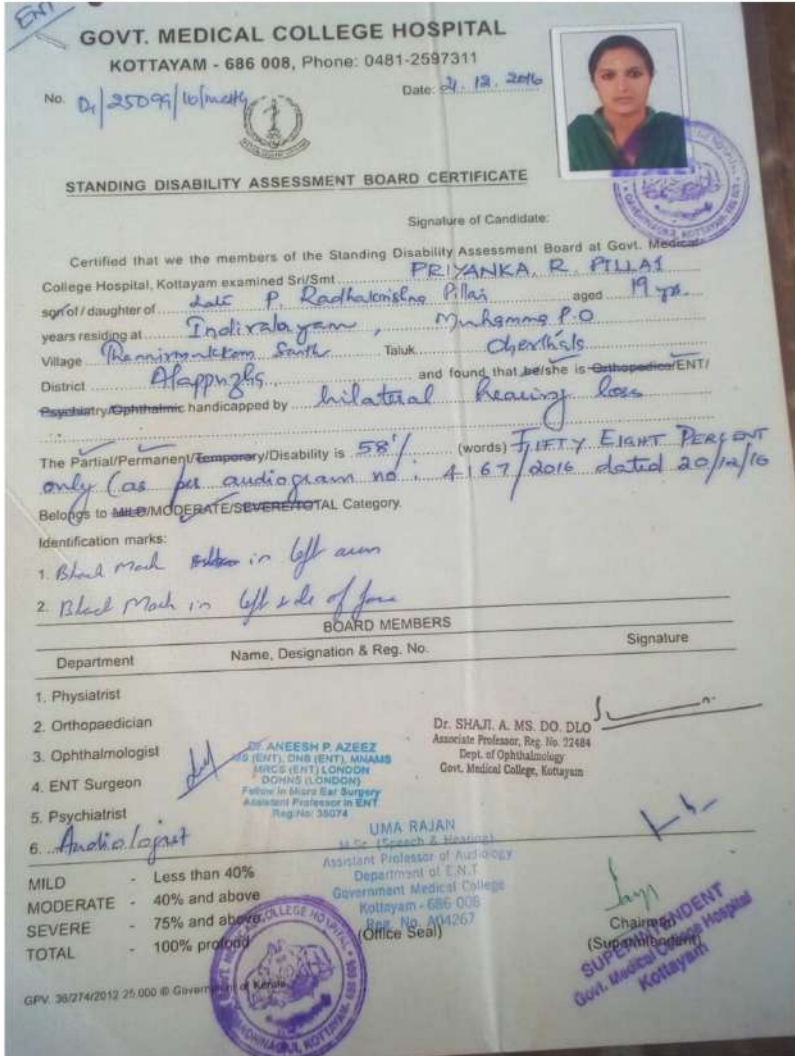 ENT
GOVT. MEDICAL COLLEGE HOSPITAL
KOTTAYAM - 686 008, Phone: 0481-2597311
No. D1/25099/16/mctty
Date: 21.12.2016
STANDING DISABILITY ASSESSMENT BOARD CERTIFICATE
Signature of Candidate:
Certified that we the members of the Standing Disability Assessment Board at Govt. Medical
College Hospital, Kottayam examined Sri/Smt PRIYANKA. R. PILLAI
son of / daughter of Late P. Radhakrishna Pillai aged 19 yrs.
years residing at Indiralayam, Muhamma P.O
Village Thannirmukkom South Taluk Cherthala
District Alappuzha and found that he/she is Orthopedics/ENT/
Psychiatry/Ophthalmic handicapped by bilateral hearing loss
The Partial/Permanent/Temporary/Disability is 58% (words) FIFTY EIGHT PERCENT
only (as per audiogram no: 4167/2016 dated 20/12/16
Belongs to MILD/MODERATE/SEVERE/TOTAL Category.
Identification marks:
1. Black Mark in left arm
2. Black Mark in left side of face
BOARD MEMBERS
Department Name, Designation & Reg. No. Signature
1. Physiatrist
2. Orthopaedician
3. Ophthalmologist
4. ENT Surgeon
5. Psychiatrist
6. Audiologist
Dr. ANEESH P. AZEEZ
MS (ENT), DNB (ENT), MNAMS
MRCS (ENT) LONDON
DOHNS (LONDON)
Fellow in Micro Ear Surgery
Assistant Professor in ENT
Reg.No: 35074
Dr. SHAJI. A. MS. DO. DLO
Associate Professor, Reg. No. 22484
Dept. of Ophthalmology
Govt. Medical College, Kottayam
UMA RAJAN
M.Sc. (Speech & Hearing)
Assistant Professor of Audiology
Department of E.N.T
Government Medical College
Kottayam - 686 008
Reg. No. A04267
MILD - Less than 40%
MODERATE - 40% and above
SEVERE - 75% and above
TOTAL - 100% profond
(Office Seal)
Chairman
(Superintendent)
SUPERINTENDENT
Govt. Medical College Hospital
Kottayam
GPV. 36/274/2012 25,000 © Government of Kerala